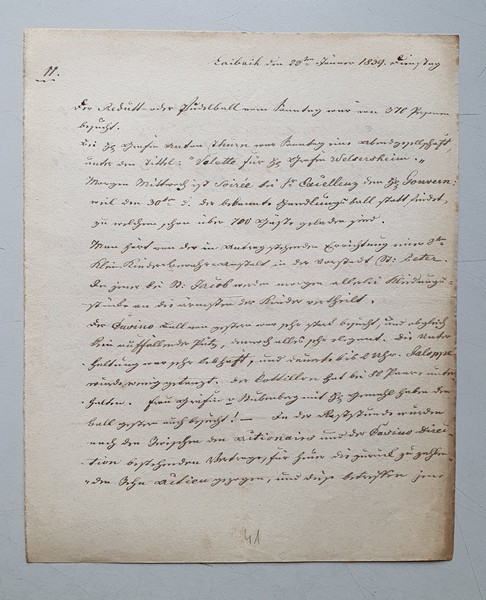 Laibach den 22ten Jänner 1839. Dienstag
11.
Der Redutt- oder Pudelball vom Sonntag war von 570 Personen
besucht.
Bei Hr Grafen Anton Thurn war Sonntag eine Abendgesellschaft
unter dem Tittel: "Toilette für Hr Grafen Welsersheim."
Morgen Mittwoch ist Soirée bei Sr Excellenz dem Hr Gouvern:
weil den 30ten d. der bekannte Handlungsball statt findet,
zu welchem schon über 700 Gäste geladen sind.
Man hört von der in Antrag stehenden Errichtung einer 2ten
Klein Kinderbewahranstalt in der Vorstadt St: Peter.
In jener bei St: Jacob werden morgen allerlei Kleidungs-
stücke an die ärmsten der Kinder vertheilt.
Der Casino Ball von gestern war sehr stark besucht, und obgleich
kein auffallender Putz, dennoch alles sehr elegant. Die Unter
haltung war sehr lebhaft, und dauerte bis 2 Uhr. Galoppe
wurde wenig getanzt. Der Cottillon hat bei 50 Paare unter-
halten. Frau Gräfin v Nürnberg mit Hr Gemahl haben den
ball gestern auch besucht! — In der Raststunde wurden
nach dem zwischen den Actionairs und der Casino Direc-
tion bestehenden Vertrage, für heuer die zurück zu zahlen-
den zehn Actien gezogen, und diese betreffen jene
41